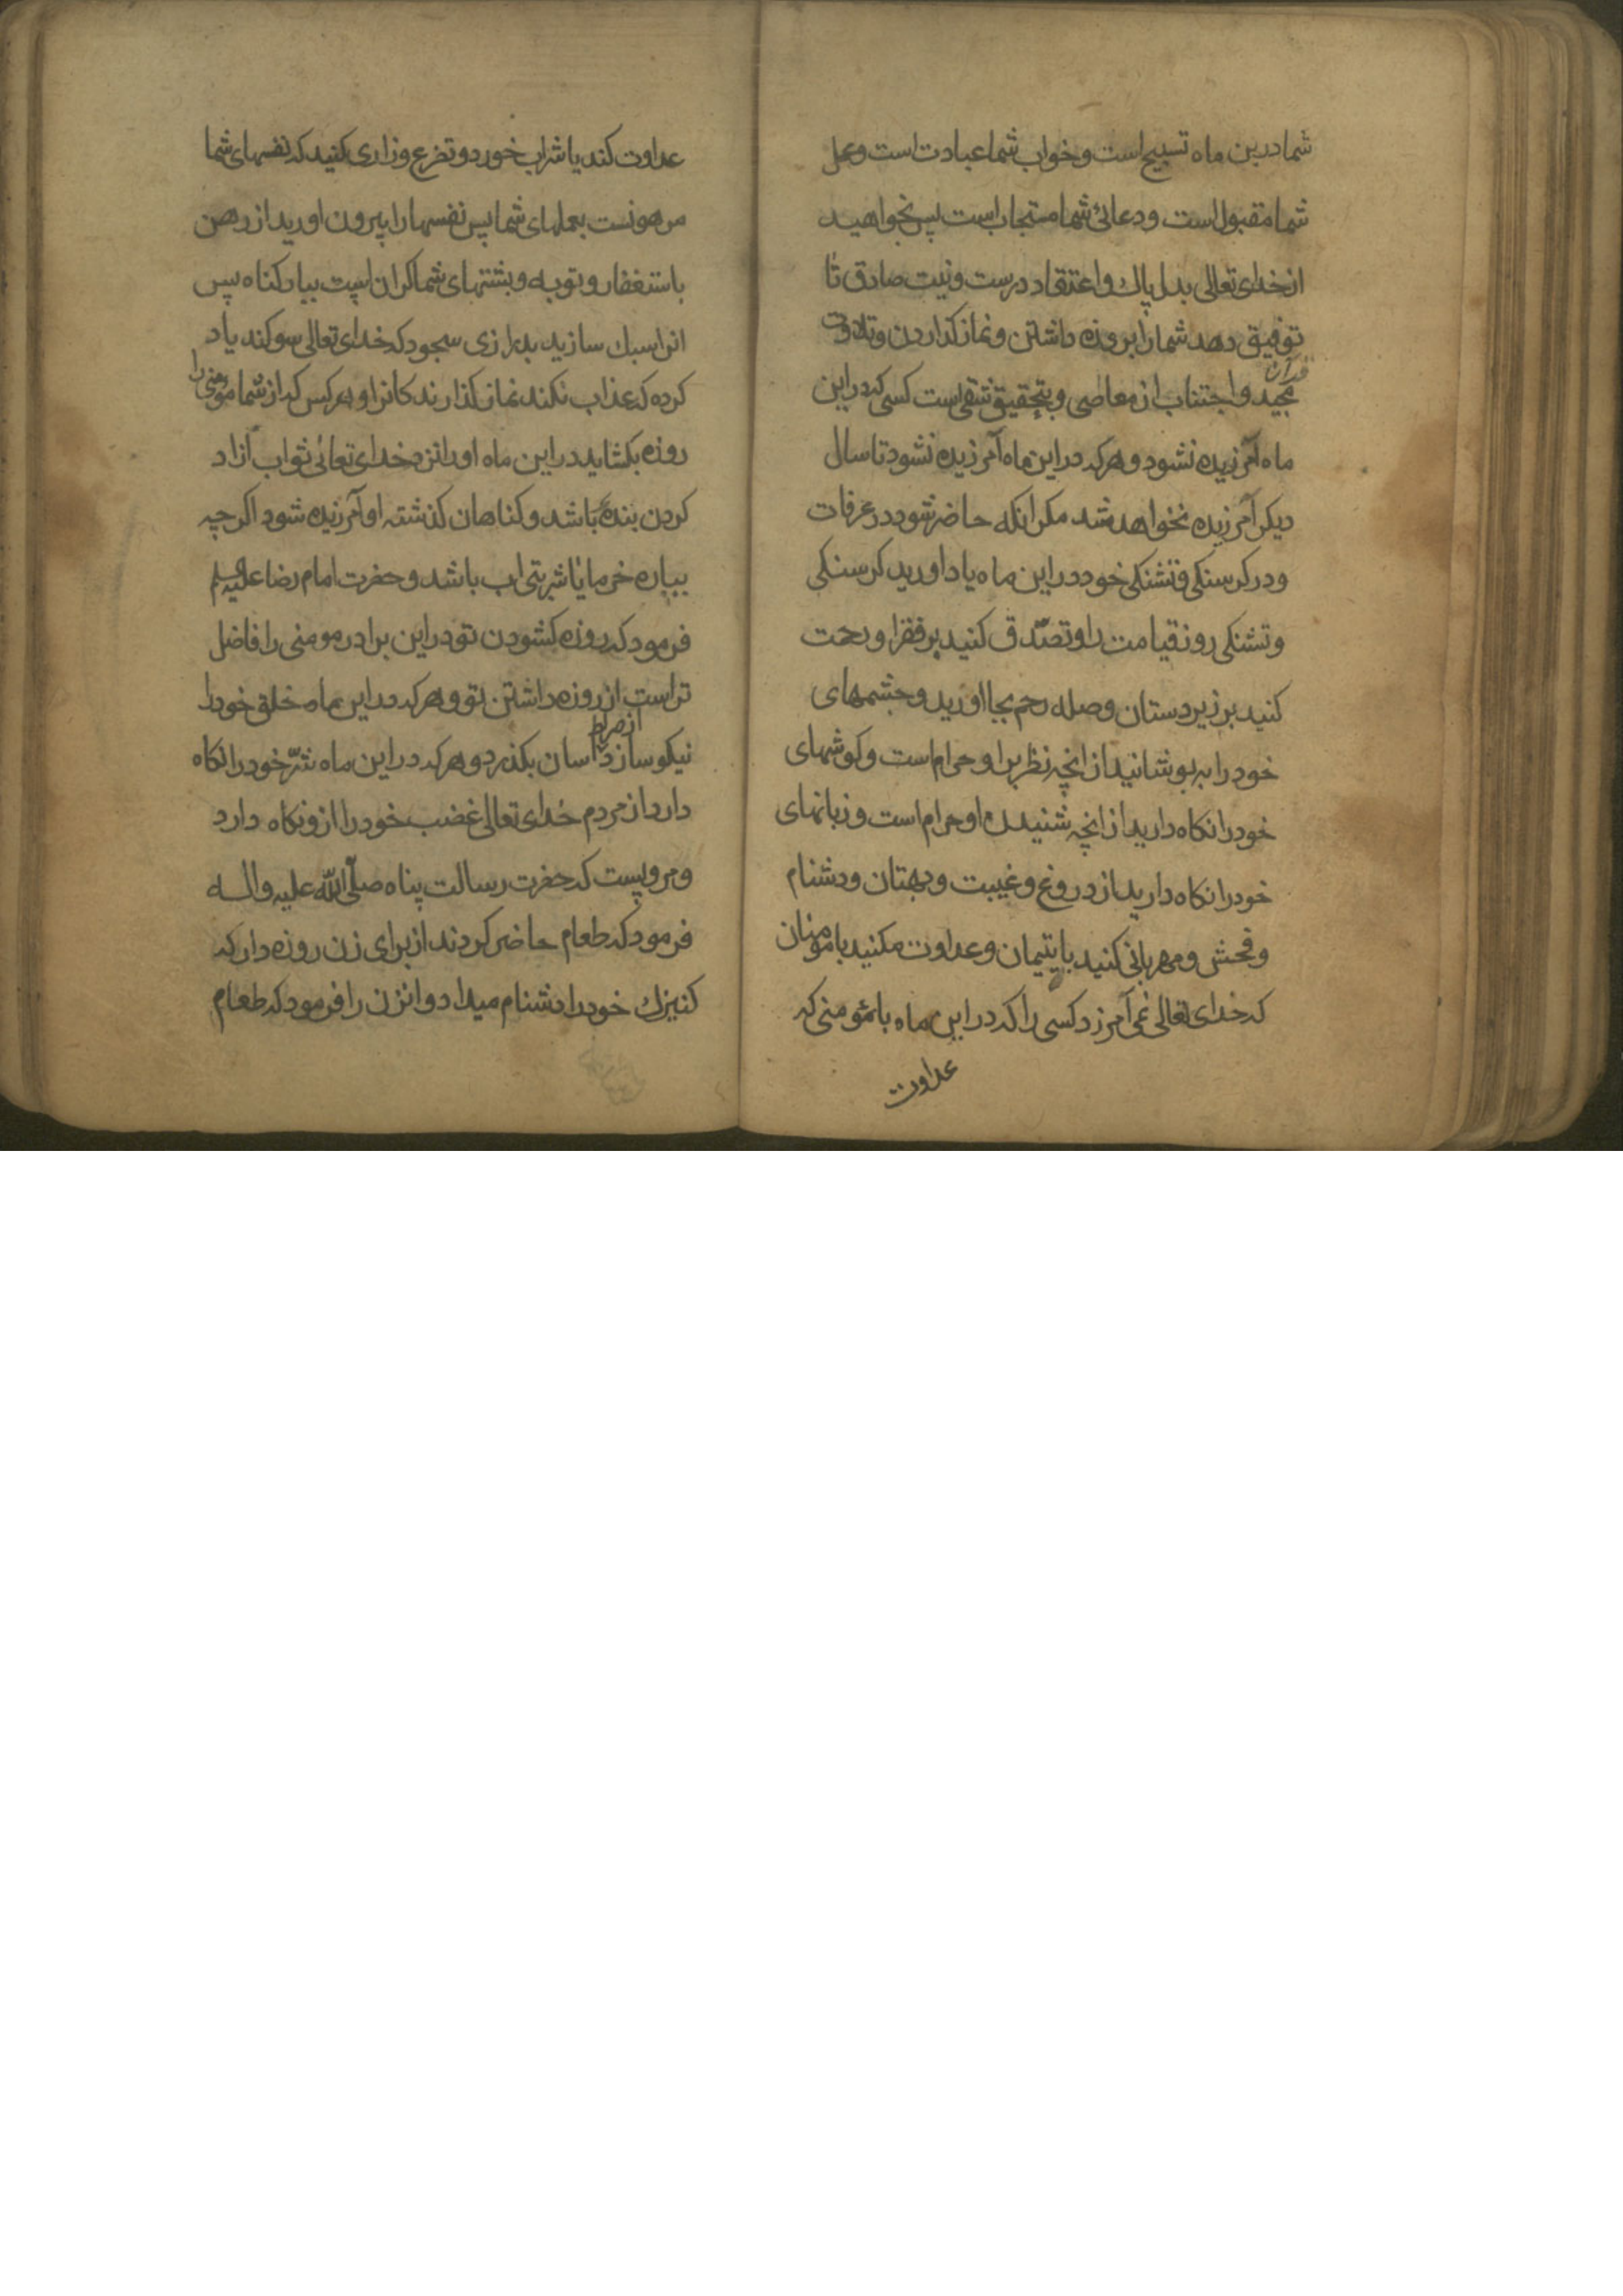 شما درین ماه تسبیح است و خواب شما عبادت است و عمل
شما مقبول است و دعائ شما مستجاب است پس بخواهید
از خدای تعالی بدل پاك و اعتقاد درست و نیت صادق تا
توفیق دهد شما را بروزه داشتن و نماز کذاردن و تلاوت
قرآن
مجید و اجتناب از معاصی و بتحقیق شقی است کسی که دراین
ماه آمرزیده نشود و هرکه دراین ماه آمرزیده نشود تا سال
دیکر آمرزیده نخواهد شد مکر انکه حاضر شود در عرفات
و در کرسنکی و تشنکی خود دراین ماه یاد اورید کرسنکی
و تشنکی روز قیامت را و تصدّق کنید بر فقرا و رحمت
کنید بر زیردستان و صله رحم بجا اورید و چشمهای
خود را به پوشانید از انچه نظر براو حرام است و کوشهای
خود را نکاه دارید از انچه شنیدن او حرام است و زبانهای
خود را نکاه دارید از دروغ و غیبت و بهتان و دشنام
و فحش و مهربانی کنید با یتیمان و عداوت مکنید با مومنان
که خدای تعالی نمی آمرزد کسی را که دراین ماه با مؤمنی که
عداوت
عداوت کند یا شراب خورد و تضرع و زاری کنید که نفسهای شما
مرهونست بعملهای شما پس نفسها را بیرون اورید از رهن
باستغفار و توبه و پشتهای شما کران است ببار کناه پس
انرا سبك سازید بدرازی سجود که خدای تعالی سوکند یاد
کرده که عذاب نکند نماز کذارندکانرا و هر کس که از شما مومنی را
روزه بکشاید دراین ماه او را نزد خدای تعالی ثواب ازاد
کردن بندهٔ باشد و کناهان کذشته او آمرزیده شود اکر چه
بپاره خرما یا شربتی اب باشد و حضرت امام رضا علیه السلم
فرمود که روزه کشودن تو دراین برادر مومنی را فاضل
تر است از روزه داشتن تو و هرکه دراین ماه خلق خود را
از صراط
نیکو سازد اسان بکذرد و هرکه دراین ماه شرّ خود را نکاه
دارد از مردم خدای تعالی غضب خود را ازو نکاه دارد
و مرویست که حضرت رسالت پناه صلّی الله علیه و اله
فرمود که طعام حاضر کردند از برای زن روزه دار که
کنیزك خود را دشنام میداد و انزن را فرمود که طعام